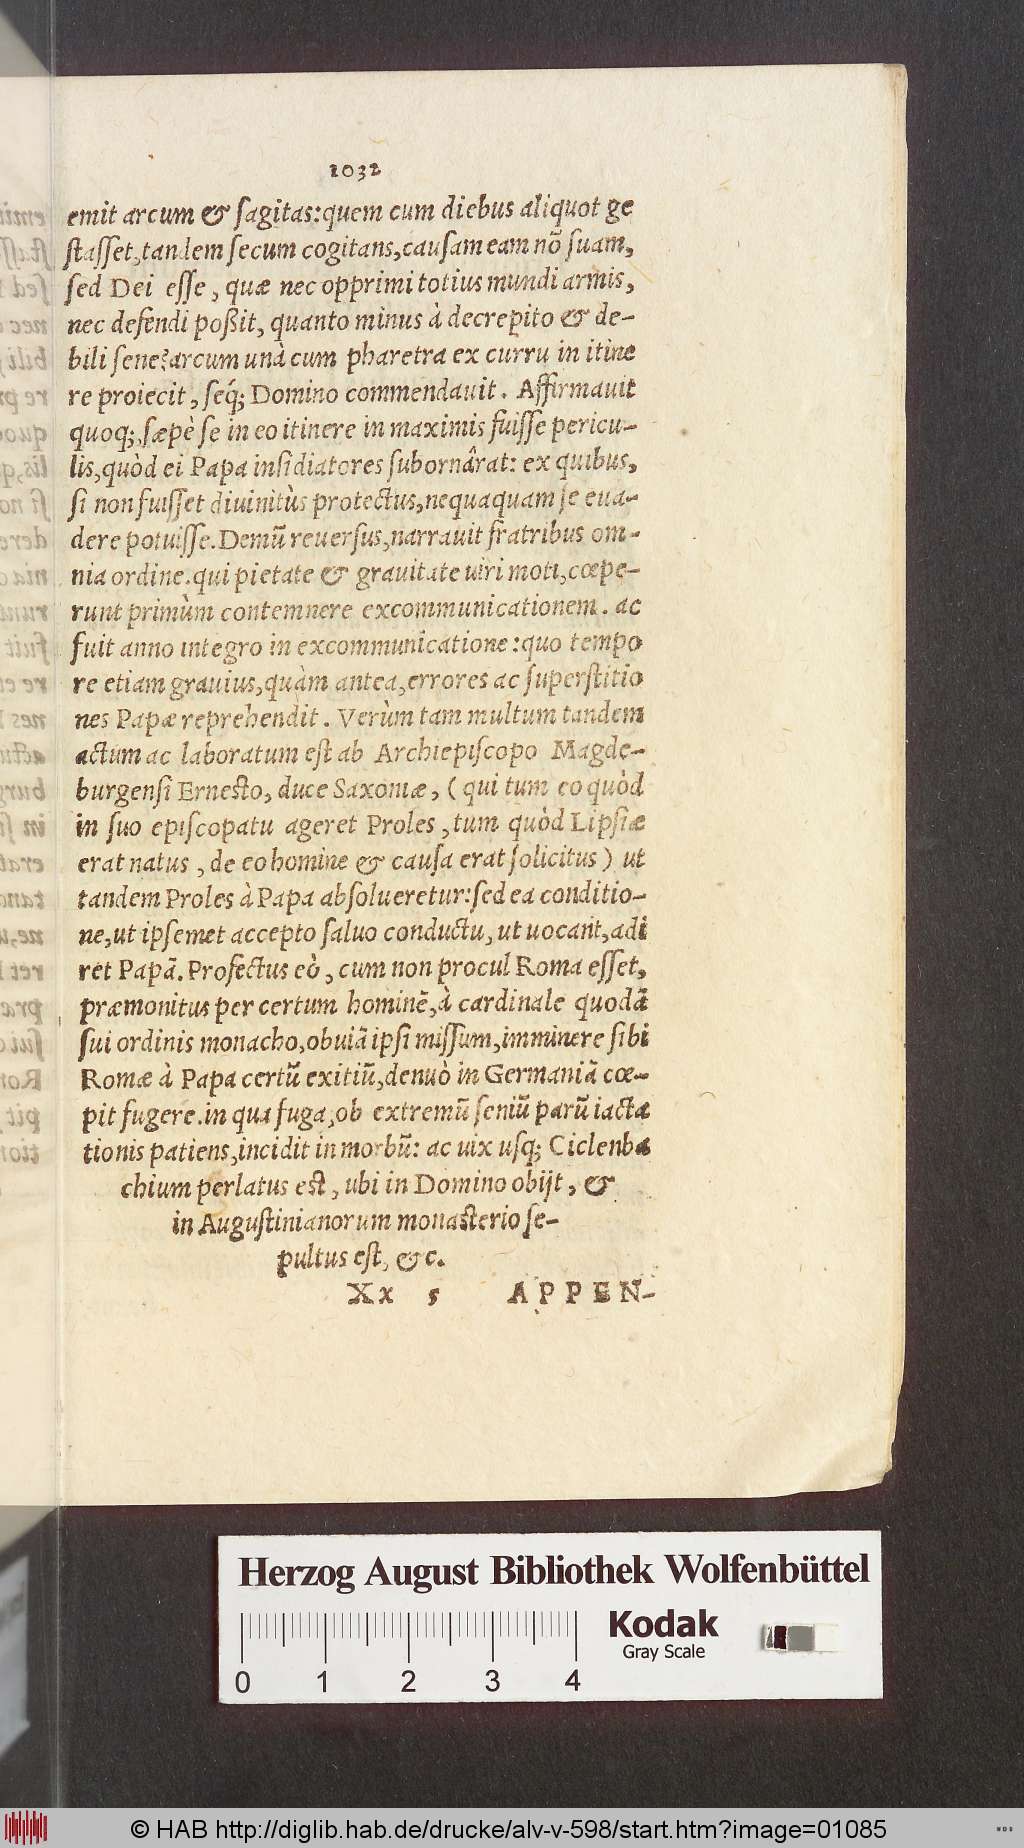 1032
emit arcum & ſagitas:quem cum diebus aliquot ge
ſtaſſet,tandem ſecum cogitans,cauſam eam nõ ſuam,
ſed Dei eſſe, quæ nec opprimi totius mundi armis,
nec defendi poßit, quanto minus à decrepito & de-
bili ſene?arcum unà cum pharetra ex curru in itine
re proiecit, ſeq́; Domino commendauit. Affirmauit
quoq;,ſæpè ſe in eo itinere in maximis fuiſſe pericu-
lis,quòd ei Papa inſidiatores ſubornârat: ex quibus,
ſi non fuiſſet diuinitùs protectus,nequaquam ſe eua-
dere potuiſſe.Demũ reuerſus,narrauit fratribus om-
nia ordine.qui pietate & grauitate uiri moti,cœpe-
runt primùm contemnere excommunicationem. ac
fuit anno integro in excommunicatione:quo tempo
re etiam grauius,quàm antea,errores ac ſuperſtitio
nes Papæ reprehendit. Verùm tam multum tandem
actum ac laboratum eſt ab Archiepiſcopo Magde-
burgenſi Erneſto, duce Saxoniæ, (qui tum eo quòd
in ſuo epiſcopatu ageret Proles, tum quòd Lipſiæ
erat natus, de eo homine & cauſa erat ſolicitus) ut
tandem Proles à Papa abſolueretur:ſed ea conditio-
ne,ut ipſemet accepto ſaluo conductu, ut uocant,adi
ret Papã. Profectus eò, cum non procul Roma eſſet,
præmonitus per certum hominẽ,à cardinale quodã
ſui ordinis monacho,obuiã ipſi miſſum,imminere ſibi
Romæ à Papa certũ exitiũ,denuò in Germaniã cœ-
pit fugere.in qua fuga,ob extremũ ſeniũ parũ iacta
tionis patiens,incidit in morbũ: ac uix uſq; Ciclenba
chium perlatus eſt, ubi in Domino obijt, &
in Auguſtinianorum monaſterio ſe-
pultus eſt, &c.
Xx 5 APPEN-
Herzog August Bibliothek Wolfenbüttel
Kodak
Gray Scale
0 1 2 3 4
© HAB http://diglib.hab.de/drucke/alv-v-598/start.htm?image=01085